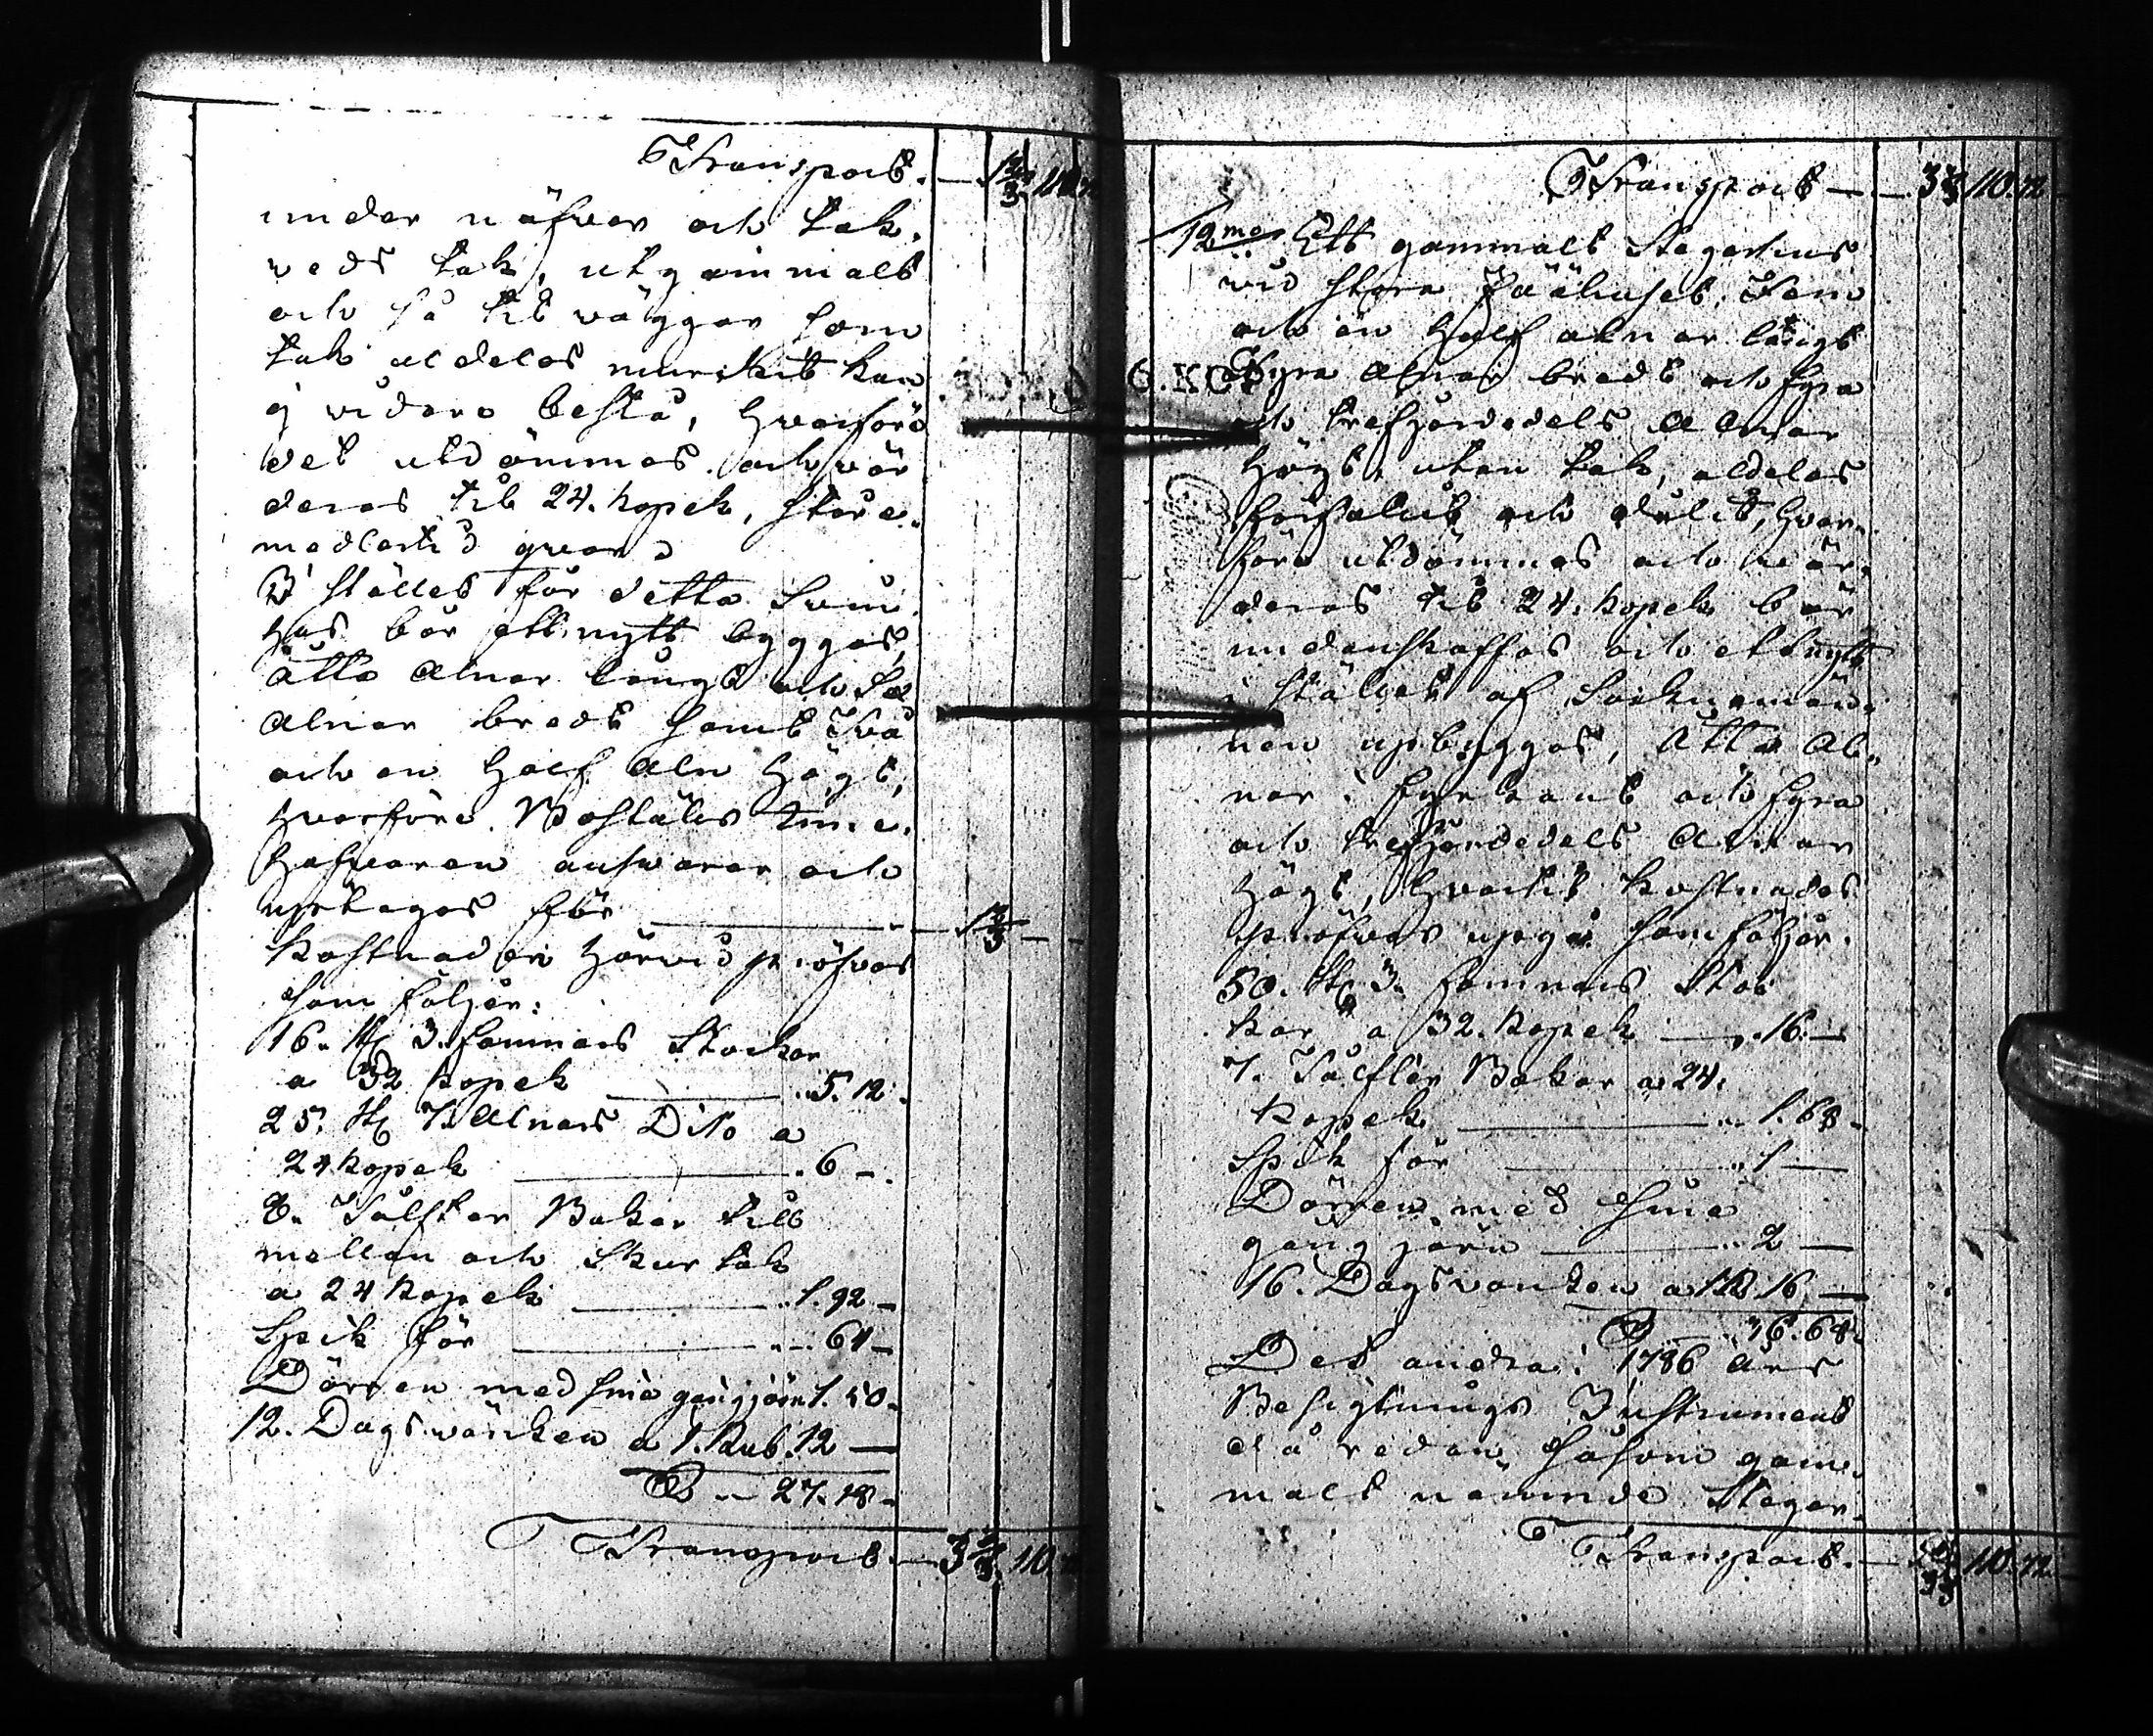 Transport. — 1 2/3 110.72
under näfver och tak-
veds tak, utgammalt
och så til väggar som
tak aldeles murknit kan
ej vidare bestå, hvarföre
det utdömmes och vär-
deras til 24. kopek, stora
medlertid qvar.
I stället för detta Svin-
hus bör ett nytt byggas,
Åtta Alnar långt och Sex
Alnar bredt samt Två
och en Half Aln högt,
hvarföre Boställes Inne-
hafvaren answarar och
uptages för — 1/3 —
Kostnaden härvid pröfvas
som följer:
16. st 3. famnars Stockar
a 32 kopek — 5.12.
25. st 7. Alnars Dito a
24 kopek — 6 —
8. Tålfter Bakar till
mellan och Skur tak
a 24 kopek — 1.92 —
Spik för — 64 —
Dörren med sine gångjärn 1.50.
12. Dagsvärken a 1. Rub. 12 —
27.18.
Transport. — 3 2/3 110.
Transport — 3 2/3 110.72
12mo Ett gammalt Stegerhus
vid stora Fäähuset, Fem
och en Half alnar långt
Fyra Alnar bredt och fyra
och trefjerdedels Alnar
högt, utan tak, aldeles
förfallit och odugligt, hvar-
före utdömmes och vär-
deras til 24. kopek bör
undanskaffas och ett nytt
i stället af Socknemän-
nen upbyggas, Åtta Al-
nar i fyrkant och fyra
och trefjerdedels Alnar
högt, hvartil kostnaden
pröfvas upgå som följer.
50. st 3. famnars Stoc
kar a 32. kopek — 16. —
7. Tålfter Bakar a 24.
kopek — 1.68 —
Spik för — 1 —
Dörren med sine
gångjärn — 2 —
16. Dagsvärken a 1 R. 16 —
36.68.
Det andra i 1786 års
Besigtnings Instrument
då redan såsom gam-
malt nämnde Steger-
Transport. — 110.72.